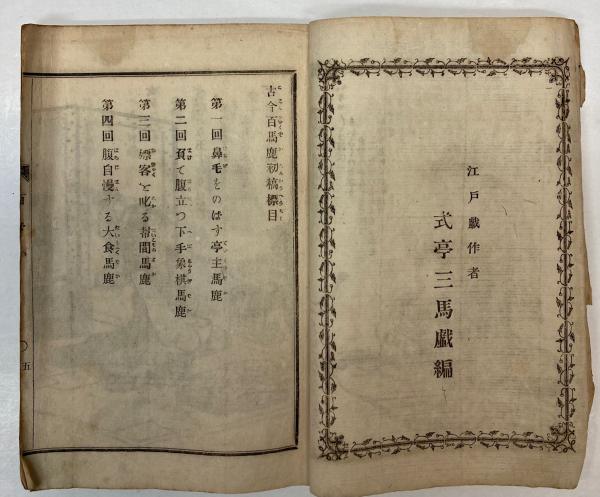 江戸戯作者
式亭三馬戯編
古今百馬鹿初稿標目
第一回鼻毛をのばす亭主馬鹿
第二回負て腹立つ下手象棋馬鹿
第三回嫖客を叱る幇間馬鹿
第四回腹自慢する大食馬鹿
五